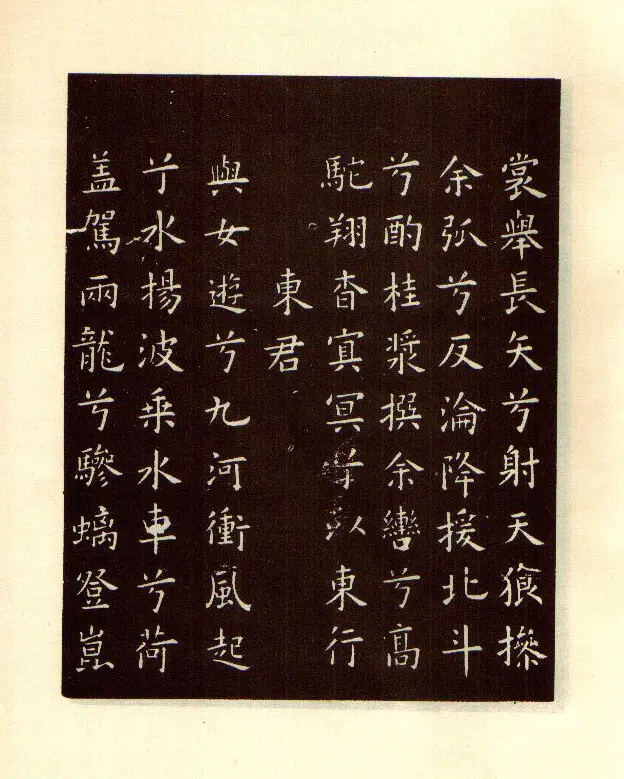 裳舉長矢兮射天狼操
余弧兮反淪降援北斗
兮酌桂漿撰余轡兮高
駝翔杳冥冥兮以東行
東君
與女遊兮九河衝風起
兮水揚波乘水車兮荷
蓋駕兩龍兮驂螭登崑